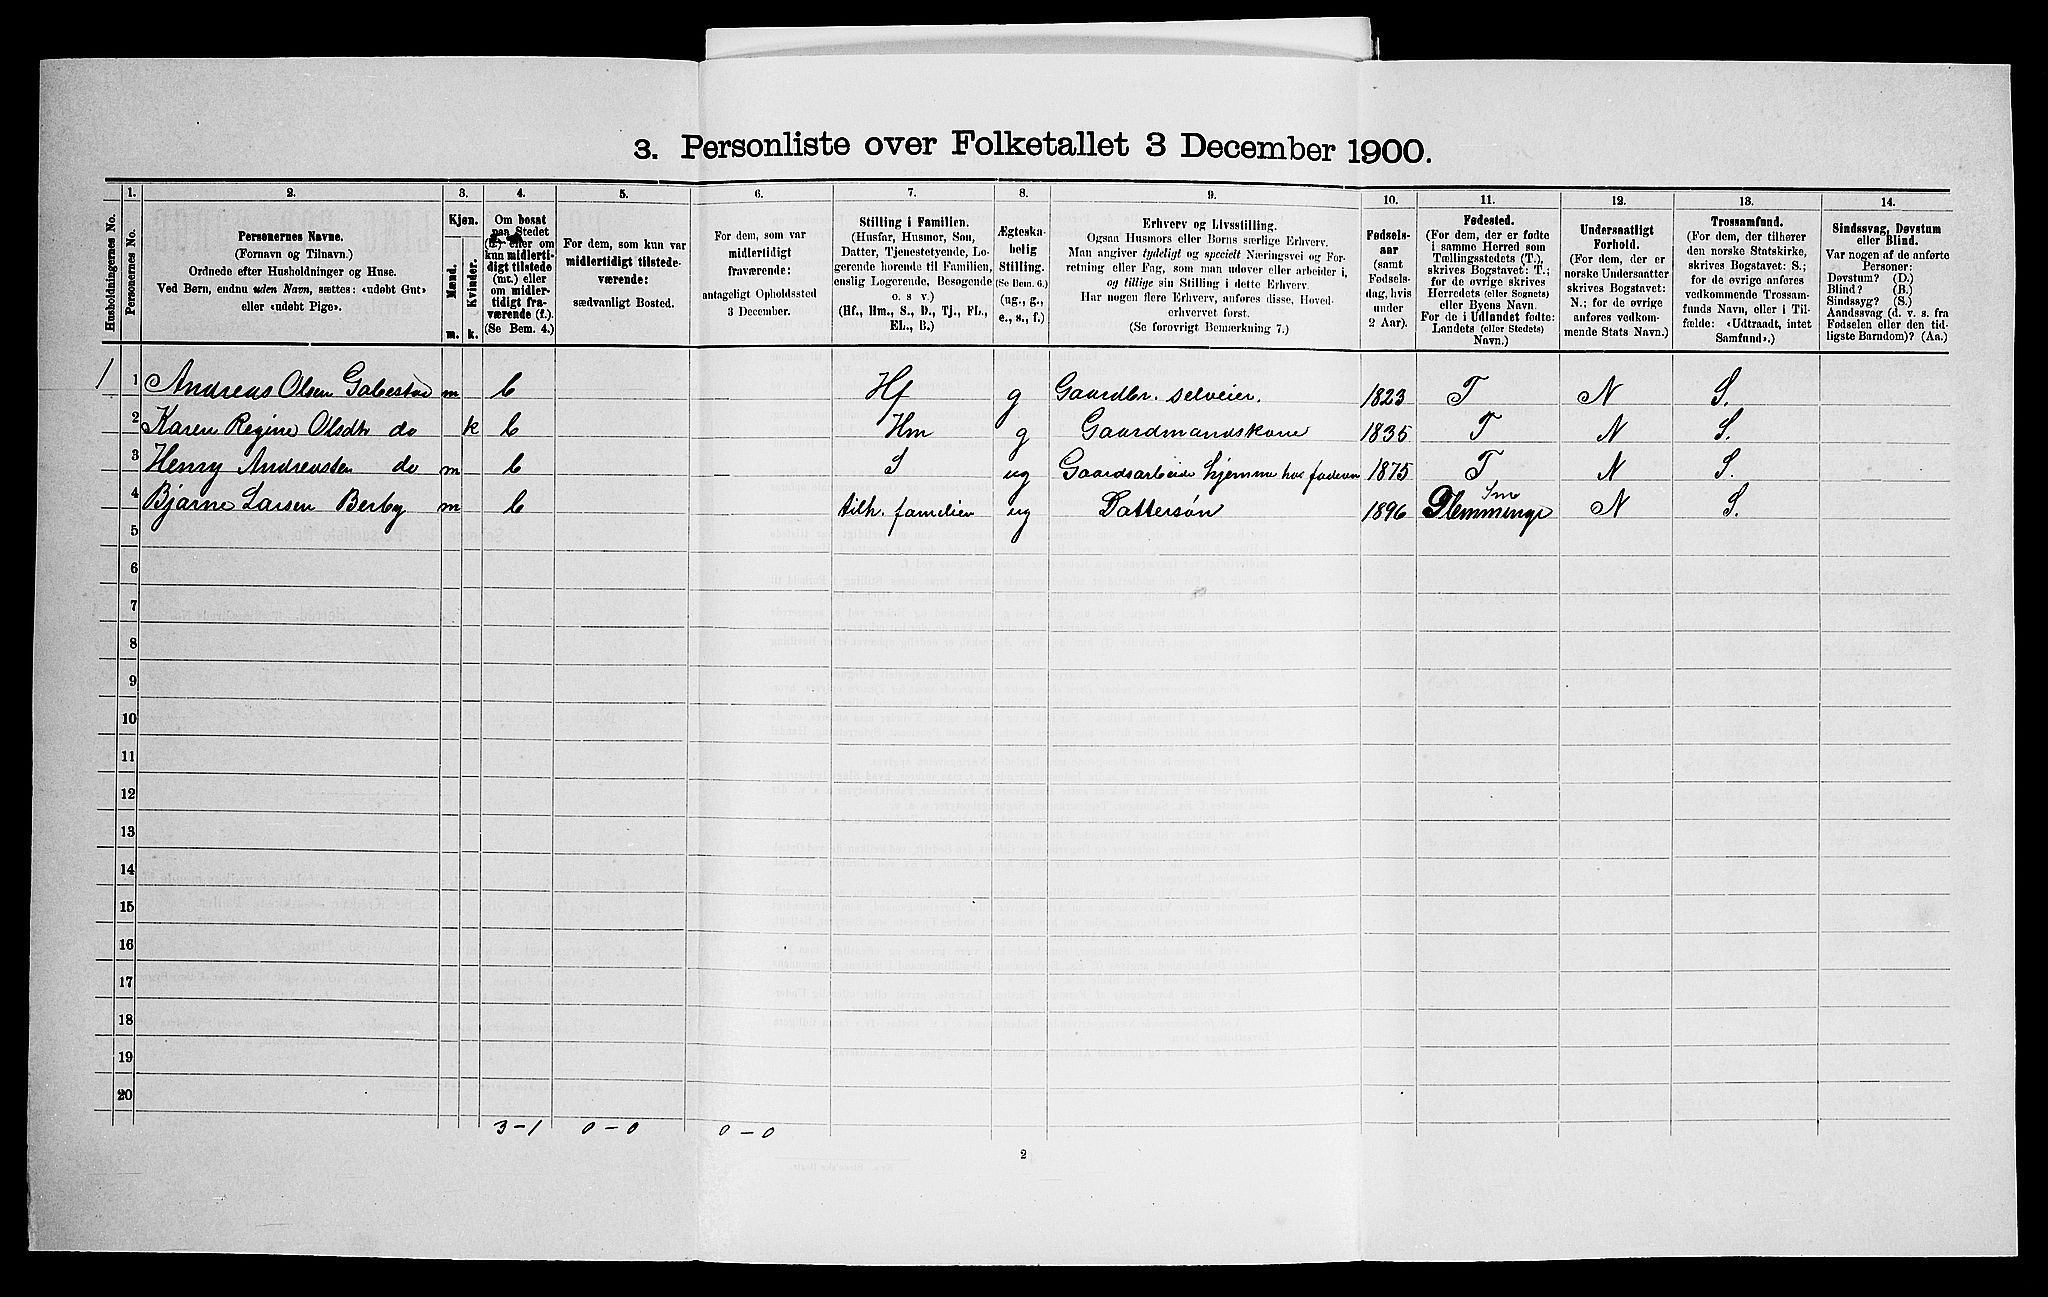 3. Personliste over Folketallet 3 December 1900.
Husholdningernes No.
1.
Personernes No.
2.
Personernes Navne.
(Fornavn og Tilnavn.)
Ordnede efter Husholdninger og Huse.
Ved Børn, endnu uden Navn, sættes: «udøbt Gut»
eller «udøbt Pige».
3.
Kjøn.
Mænd.
Kvinder.
m.
k.
4.
Om bosat
paa Stedet
(b.) eller om
kun midlerti-
digt tilstede
(mt.) eller
om midler-
tidigt fra-
værende (f.).
(Se Bem. 4.)
5.
For dem, som kun var
midlertidigt tilstede-
værende:
sædvanligt Bosted.
6.
For dem, som var
midlertidigt
fraværende:
antageligt Opholdssted
3 December.
7.
Stilling i Familien.
(Husfar, Husmor, Søn,
Datter, Tjenestetyende, Lo-
gerende hørende til Familien,
enslig Logerende, Besøgende
o. s. v.)
(Hf., Hm., S., D., Tj., FL.,
EL., B.)
8.
Ægteska-
belig
Stilling.
(Se Bem. 6.)
(ug., g.,
e., s., f.)
9.
Erhverv og Livsstilling.
Ogsaa Husmors eller Børns særlige Erhverv.
Man angiver tydeligt og specielt Næringsvei og For-
retning eller Fag, som man udøver eller arbeider i,
og tillige sin Stilling i dette Erhverv.
Har nogen flere Erhverv, anføres disse, Hoved-
erhvervet først.
(Se forøvrigt Bemerkning 7.)
10.
Fødsels-
aar
(samt
Fødsels-
dag, hvis
under
2 Aar).
11.
Fødested.
(For dem, der er fødte
i samme Herred som
Tællingsstedets (T.),
skrives Bogstavet: T.;
for de øvrige skrives
Herredets (eller Sognets)
eller Byens Navn.
For de i Udlandet fødte:
Landets (eller Stedets)
Navn.)
12.
Undersaatligt
Forhold.
(For dem, der er
norske Undersaatter
skrives Bogstavet:
N.; for de øvrige
anføres vedkom-
mende Stats Navn.)
13.
Trossamfund.
(For dem, der tilhører
den norske Statskirke,
skrives Bogstavet: S.;
for de øvrige anføres
vedkommende Trossam-
funds Navn, eller i Til-
fælde: «Udtraadt, intet
Samfund».)
14.
Sindssvag, Døvstum
eller Blind.
Var nogen af de anførte
Personer:
Døvstum? (D.)
Blind? (B.)
Sindssyg? (S.)
Aandssvag (d. v. s. fra
Fødselen eller den tid-
ligste Barndom)? (Aa.)
1 1 Andreas Olsen m b Hf g Gaardbr. selveier. 1823 T N S.
2 Karen Regine Olsdtr do k b Hm g Gaardmandskone 1835 T N S.
3 Henry Andreassen do m b S ug Gaardsarbeide hjemme hos faderen 1875 T N S.
4 Bjarne Larsen Berby m b tilh. familien ug Dattersøn 1896 Sm N S.
5
6
7
8
9
10
11
12
13
14
15
16
17
18
19
20
3 – 1 0 – 0 0 – 0
2